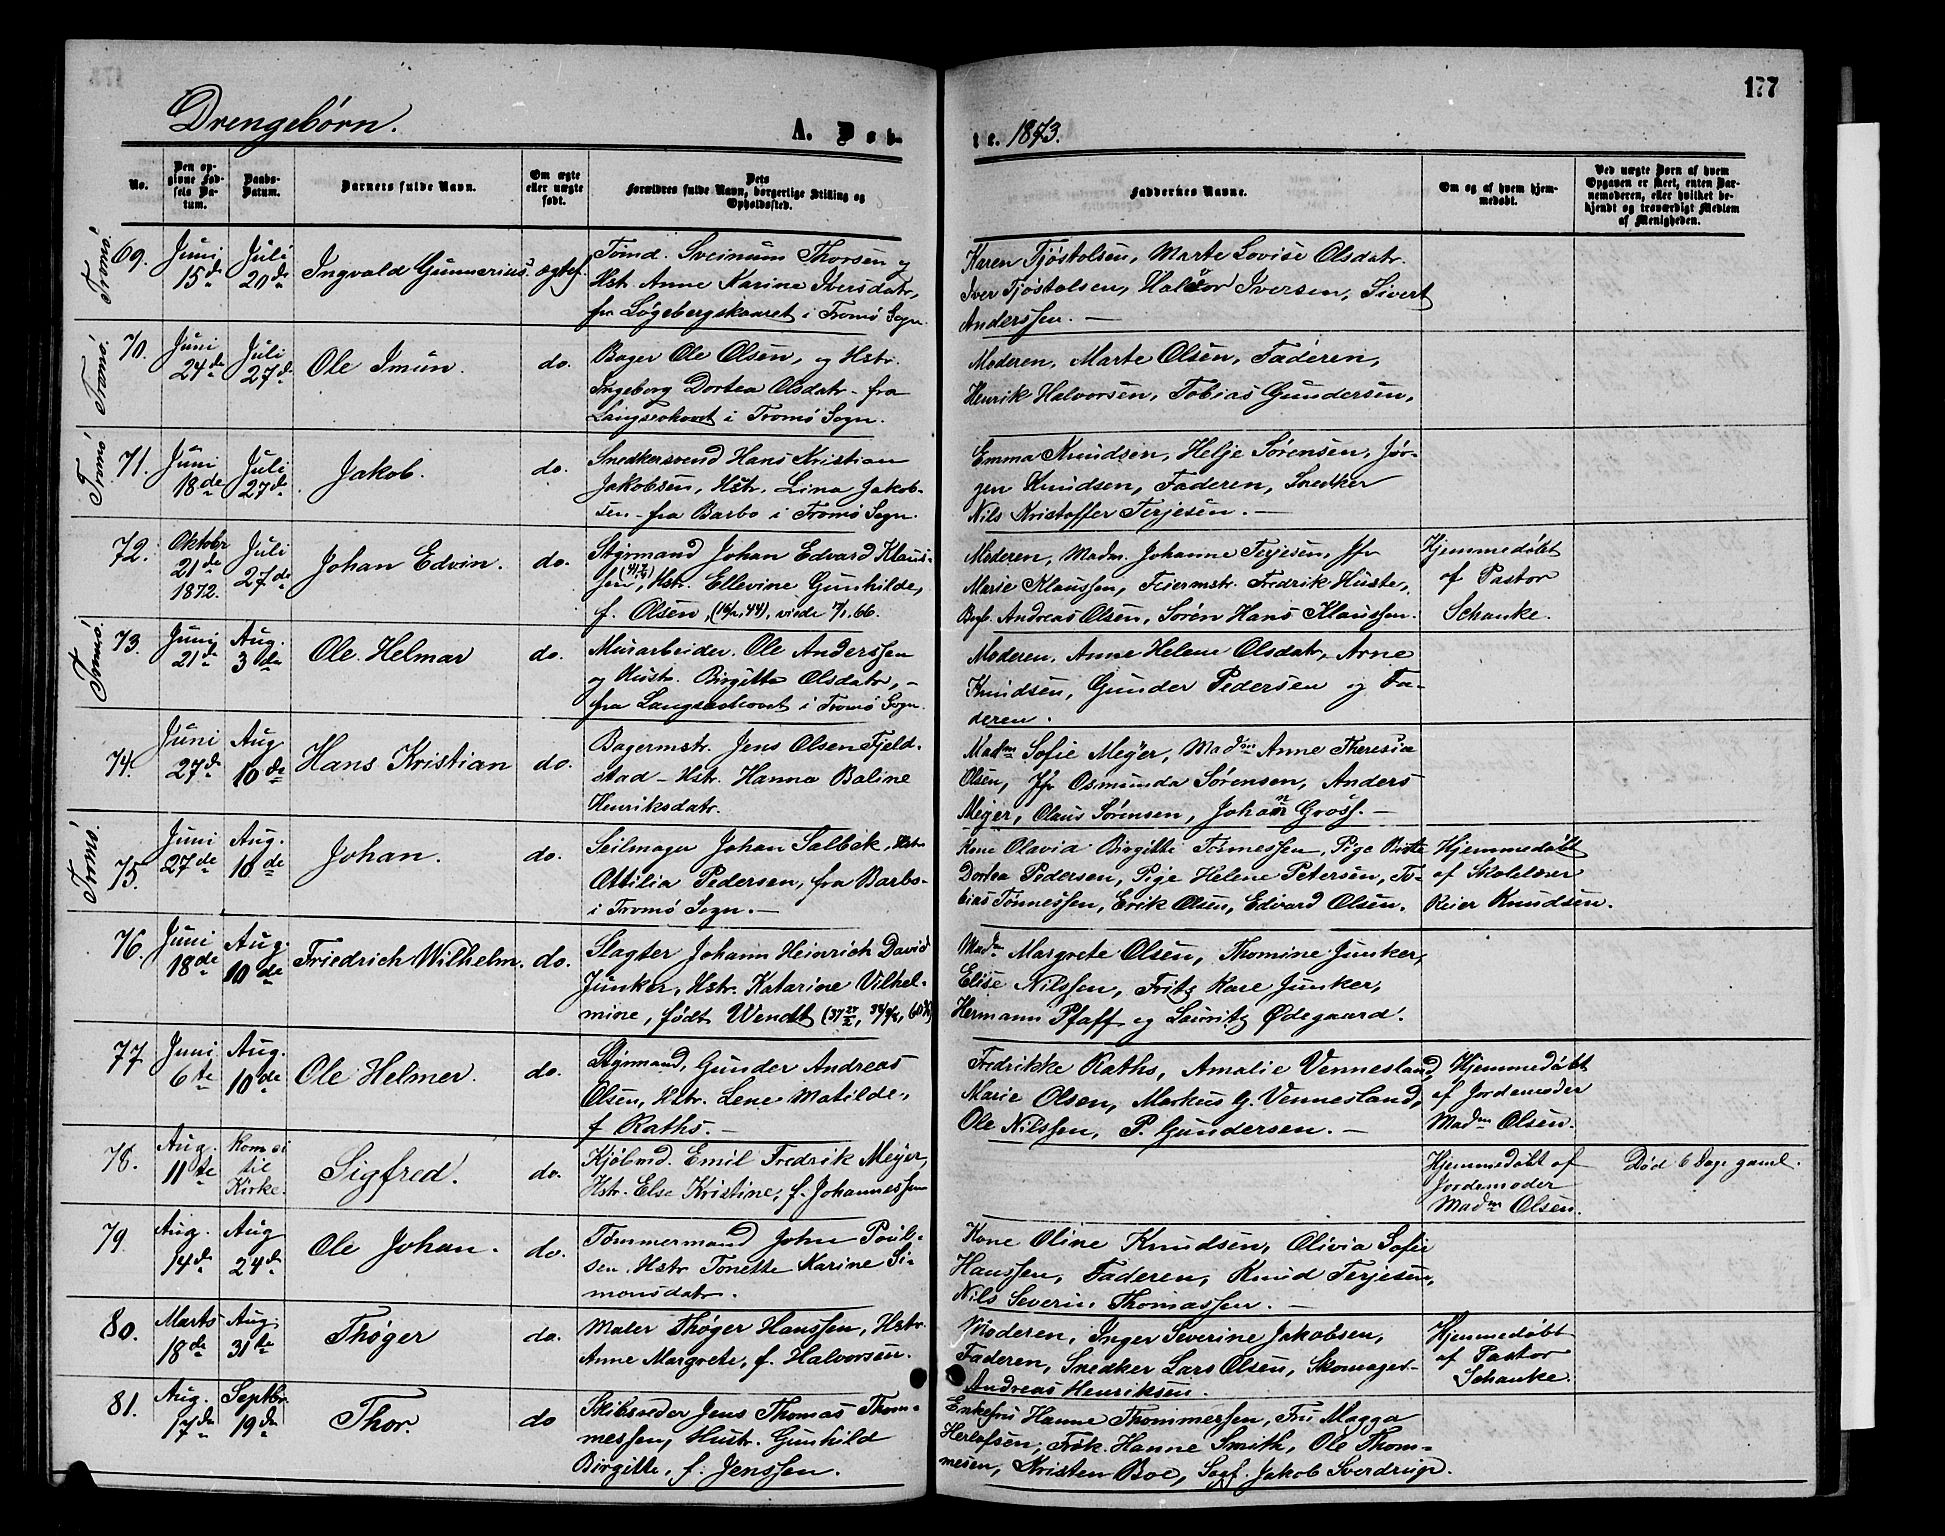 177
Drengebörn.
A. Døb-
te. 1873.
No.
Den opgivne Fødsels Datum.
Daabs-Datum.
Barnets fulde Navn.
Om ægte eller uægte født.
Dets Forældres fulde Navn, borgerlige Stilling og Opholdssted.
Faddernes Navne.
Om og af hvem hjemmedøbt.
Ved uægte Børn af hvem Opgaven er skeet, enten Barnemoderen, eller hvilket bekjendt og troværdigt Medlem af Menigheden.
Tromö.
69.
Juni 15de
Juli 20de
Ingvald Gunnerius.
ægtef.
Tömd. Sveinum Thorsen og
Hst. Anne Karine Iversdatr,
fra Løgebergskaaret i Tromö Sogn.
Karen Tjøstolsen, Marte Lovise Olsdatr.
Iver Tjøstolsen, Halvor Iversen, Sivert
Anderssen. —
Tromö.
70.
Juni 24de
Juli 27de
Ole Imun.
do.
Bager Ole Olsen, og Hstr.
Ingeborg Dortea Olsdatr - fra
Langsæhovet i Tromö Sogn.
Moderen, Marte Olsen, Faderen,
Henrik Halvorsen, Tobias Gundersen,
Tromö
71.
Juni 18de
Juli 27de
Jakob.
do.
Snedkersvend Hans Kristian
Jakobsen, Hstr. Lina Jakob-
sen - fra Barbo i Tromö Sogn.
Emma Knudsen, Helje Sørensen, Jør-
gen Knudsen, Faderen, Snedker
Nils Kristoffer Terjesen. —
72.
Oktobr 21de 1872.
Juli 27de
Johan Edvin.
do.
Styrmand Johan Edvard Klaus-
sen, Hstr. Ellevine Gunhilde,
f. Olsen, viede 7/1.66.
Moderen, Madm. Johanne Terjesen, Jfr
Marie Klaussen, Feiermstr. Fredrik Huste,
Andreas Olsen, Sørén Hans Klaussen.
Hjemmedøbt
af Pastor
Schanke.
Tromö.
73.
Juni 21de
Aug. 3die
Ole Helmar
do.
Murarbeider. Ole Anderssen
og Hustr. Birgitte Olsdatr, -
fra Langsæhovet i Tromö Sogn.
Moderen, Anne Helene Olsdatr, Arne
Knudsen, Gunder Pedersen og Fa-
deren.
74.
Juni 27de
Aug 10de
Hans Kristian
do.
Bagermstr. Jens Olsen Fjeld-
stad - Hstr. Hanna Baline
Henriksdatr.
Madm Sofie Meyer, Madm Anne Theresia
Olsen, Jfr Osmunda Sørensen, Anders
Meyer, Olaus Sørensen, Johan Gross. —
Tromö.
75.
Juni 27de
Aug. 10de
Johan.
do.
Seilmager Johan Salbøk, Hstr
Attilia Pedersen, fra Barbo-
i Tromö Sogn. —
Kone Olavia Birgitte Tönnessen, Pige
Dortea Pedersen, Pige Helene Petersen, To-
bias Tönnessen, Erik Olsen, Edvard Olsen.
Hjemmedøbt
af Skolelærer
Reier Knudsen.
76.
Juni 18de
Aug. 10de
Friedrich Wilhelm.
do.
Slagter Johann Heinrich David
Junker, Hstr. Katarine Vilhel-
mine, født Wendt
Madm Margrete Olsen, Thomine Junker,
Elise Nilssen, Fritz Kare Junker,
Hermann Pfaff og Lauritz Ødegaard.
77
Juni 6te
Aug. 10de
Ole Helmer.
do.
Styrmand, Gunder Andreas
Olsen, Hstr. Lene Matilde,
f Raths. —
Fredrikke Raths, Amalie Vennesland,
Marie Olsen, Markus G. Vennesland,
Ole Nilssen, P. Gundersen. —
Hjemmedøbt
af Jordemoder
Madm Olsen.
78.
Aug. 11te
Kom ei til Kirke.
Sigfred.
do.
Kjöbmd. Emil Fredrik Meyer,
Hstr. Else Kristine, f. Johannessen
Hjemmedøbt af
Jordemoder
Madm Olsen.
Död 6 Dage gaml.
79.
Aug. 14de
Aug 24de
Ole Johan.
do.
Tømmermand John Poul-
sen. Hstr Tonette Karine Si-
monsdatr.
Kone Oline Knudsen, Olivia Sofie
Hanssen, Faderen, Knud Terjesen,
Nils Severin Thomassen. —
80.
Marts 18de
Aug 31te
Thöger
do.
Maler Thöger Hanssen, Hstr.
Anne Margrete, f. Halvorsen.
Moderen, Inger Severine Jakobsen,
Faderen, Snedker Lars Olsen, Skomager-
Andreas Henriksen.
Hjemmedøbt
af Pastor
Schanke.
81.
Aug. 17de
Septbr. 19de
Thor.
do
Skibsreder Jens Thomas Thom-
messen, Hustr. Gunhild
Birgitte, f. Jenssen.
Enkefru Hanne Thommessen, Fru Magga
Herlofsen, Frøk. Hanne Smith, Ole Thom-
mesen, Kristen Boe, Sagf. Jakob Sverdrup.